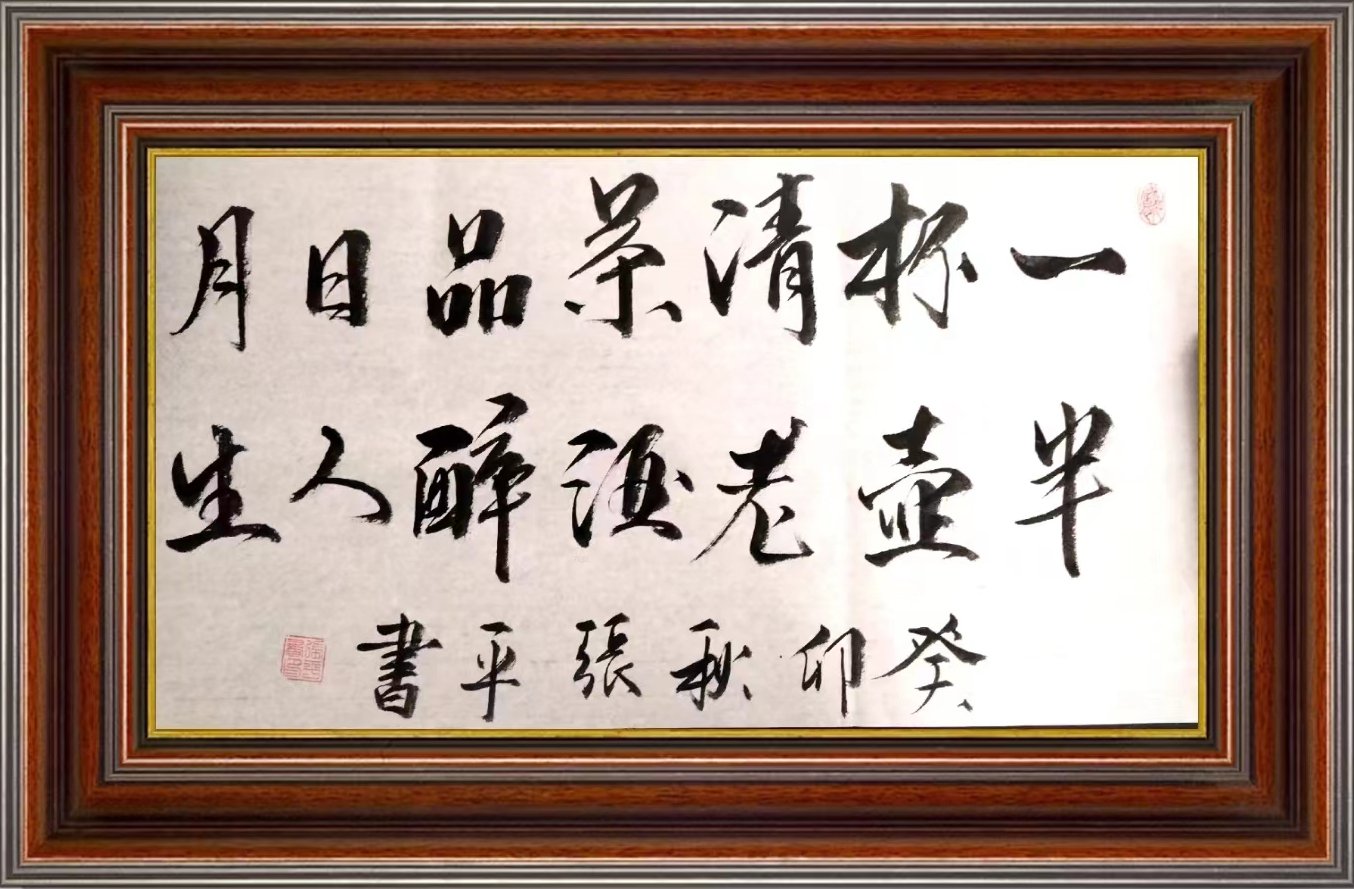 一杯清茶品日月
半壶老酒醉人生
癸卯秋張平書